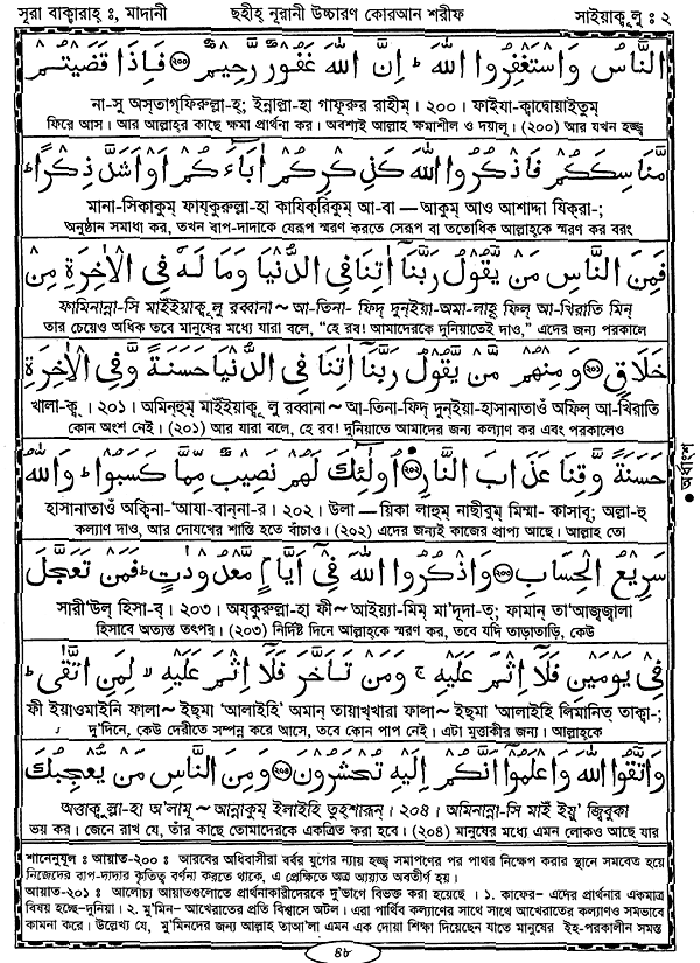 সূরা বাক্বারাহ্ ঃ, মাদানী ছহীহ্ নূরানী উচ্চারণ কোরআন শরীফ সাইয়াকূলু ঃ ২
النَّاسُ وَاسْتَغْفِرُوا اللّٰهَ ؕ اِنَّ اللّٰهَ غَفُوْرٌ رَّحِيْمٌ ﴿٢٠٠﴾ فَاِذَا قَضَيْتُمْ
না-সু অস্তাগ্‌ফিরুল্লা-হ্; ইন্নাল্লা-হা গাফূরুর রাহীম্ । ২০০। ফাইযা-ক্বাদ্বোয়াইতুম্
ফিরে আস। আর আল্লাহ্‌র কাছে ক্ষমা প্রার্থনা কর। অবশ্যই আল্লাহ ক্ষমাশীল ও দয়ালূ। (২০০) আর যখন হজ্জ
مَّنَاسِكَكُمْ فَاذْكُرُوا اللّٰهَ كَذِكْرِكُمْ اٰبَآءَكُمْ اَوْ اَشَدَّ ذِكْرًا ؕ
মানা-সিকাকুম্ ফায্‌কুরুল্লা-হা কাযিক্‌রিকুম্ আ-বা —আকুম্ আও আশাদ্দা যিক্‌রা-;
অনুষ্ঠান সমাধা কর, তখন বাপ-দাদাকে যেরূপ স্মরণ করতে সেরূপ বা ততোধিক আল্লাহ্‌কে স্মরণ কর বরং
فَمِنَ النَّاسِ مَنْ يَّقُوْلُ رَبَّنَآ اٰتِنَا فِى الدُّنْيَا وَمَا لَهٗ فِى الْاٰخِرَةِ مِنْ
ফামিনান্না-সি মাইঁইয়াক্বূ লু রব্বানা ~ আ-তিনা- ফিদ্ দুন্ইয়া-অমা-লাহূ ফিল্ আ-খিরাতি মিন্
তার চেয়েও অধিক তবে মানুষের মধ্যে যারা বলে, "হে রব! আমাদেরকে দুনিয়াতেই দাও," এদের জন্য পরকালে
خَلَاقٍ ﴿٢٠١﴾ وَمِنْهُمْ مَّنْ يَّقُوْلُ رَبَّنَآ اٰتِنَا فِى الدُّنْيَا حَسَنَةً وَّفِى الْاٰخِرَةِ
খালা-ক্ব্ । ২০১। অমিন্‌হুম্ মাইঁইয়াক্বূ লু রব্বানা ~ আ-তিনা-ফিদ্ দুন্ইয়া-হাসানাতাওঁ অফিল্ আ-খিরাতি
কোন অংশ নেই। (২০১) আর যারা বলে, হে রব! দুনিয়াতে আমাদের জন্য কল্যাণ কর এবং পরকালেও
حَسَنَةً وَّقِنَا عَذَابَ النَّارِ ﴿٢٠٢﴾ اُولٰٓئِكَ لَهُمْ نَصِيْبٌ مِّمَّا كَسَبُوْا ؕ وَاللّٰهُ
হাসানাতাওঁ অক্বিনা-'আযা-বান্না-র । ২০২। উলা —য়িকা লাহুম্ নাছীবুম্ মিম্মা- কাসাবূ; অল্লা-হু
কল্যাণ দাও, আর দোযখের শাস্তি হতে বাঁচাও। (২০২) এদের জন্যই কাজের প্রাপ্য আছে। আল্লাহ তো
سَرِيْعُ الْحِسَابِ ﴿٢٠٣﴾ وَاذْكُرُوا اللّٰهَ فِىْٓ اَيَّامٍ مَّعْدُوْدٰتٍ ؕ فَمَنْ تَعَجَّلَ
সারী'উল্ হিসা-ব্ । ২০৩। অয্‌কুরুল্লা-হা ফী ~ আইয়্যা-মিম্ মা'দূদা-ত্; ফামান্ তা'আজ্জ্বালা
হিসাবে অত্যন্ত তৎপর। (২০৩) নির্দিষ্ট দিনে আল্লাহ্‌কে স্মরণ কর, তবে যদি তাড়াতাড়ি, কেউ
فِىْ يَوْمَيْنِ فَلَآ اِثْمَ عَلَيْهِ ۚ وَمَنْ تَاَخَّرَ فَلَآ اِثْمَ عَلَيْهِ ۙ لِمَنِ اتَّقٰى ؕ
ফী ইয়াওমাইনি ফালা~ ইছ্‌মা 'আলাইহি' অমান্ তায়াখ্‌খারা ফালা~ ইছ্‌মা 'আলাইহি লিমানিত্ তাক্বা-;
দু'দিনে, কেউ দেরীতে সম্পন্ন করে আসে, তবে কোন পাপ নেই। এটা মুত্তাকীর জন্য। আল্লাহ্‌কে
وَاتَّقُوا اللّٰهَ وَاعْلَمُوْٓا اَنَّكُمْ اِلَيْهِ تُحْشَرُوْنَ ﴿٢٠٤﴾ وَمِنَ النَّاسِ مَنْ يُّعْجِبُكَ
অত্তাক্বু ল্লা-হা অ'লামূ ~ আন্নাকুম্ ইলাইহি তুহ্‌শারূন্ । ২০৪। অমিনান্না-সি মাইঁ ইয়ু' জ্বিবুকা
ভয় কর। জেনে রাখ যে, তাঁর কাছে তোমাদেরকে একত্রিত করা হবে। (২০৪) মানুষের মধ্যে এমন লোকও আছে যার
অর্ধাংশ
শানেনুযূল ঃ আয়াত-২০০ ঃ আরবের অধিবাসীরা বর্বর যুগের ন্যায় হজ্জ সমাপণের পর পাথর নিক্ষেপ করার স্থানে সমবেত হয়ে
নিজেদের বাপ-দাদার কৃতিত্ব বর্ণনা করতে থাকে, এ প্রেক্ষিতে অত্র আয়াত অবতীর্ণ হয়।
আয়াত-২০১ ঃ আলোচ্য আয়াতগুলোতে প্রার্থনাকারীদেরকে দু'ভাগে বিভক্ত করা হয়েছে । ১. কাফের- এদের প্রার্থনার একমাত্র
বিষয় হচ্ছে-দুনিয়া। ২. মু'মিন- আখেরাতের প্রতি বিশ্বাসে অটল। এরা পার্থিব কল্যাণের সাথে সাথে আখেরাতের কল্যাণও সমভাবে
কামনা করে। উল্লেখ্য যে, মু'মিনদের জন্য আল্লাহ তাআ'লা এমন এক দোয়া শিক্ষা দিয়েছেন যাতে মানুষের ইহ-পরকালীন সমস্ত
৪৮